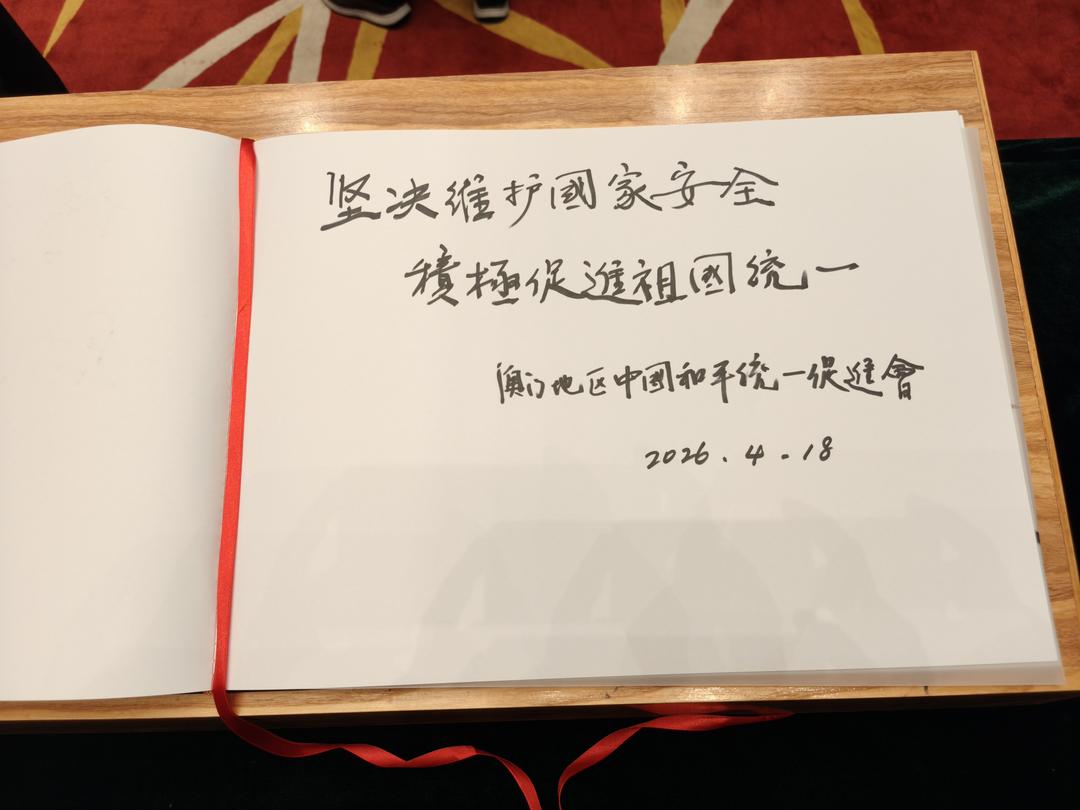 坚决维护國家安全
積極促進祖國统一
澳门地区中國和平统一促進會
2026.4.18